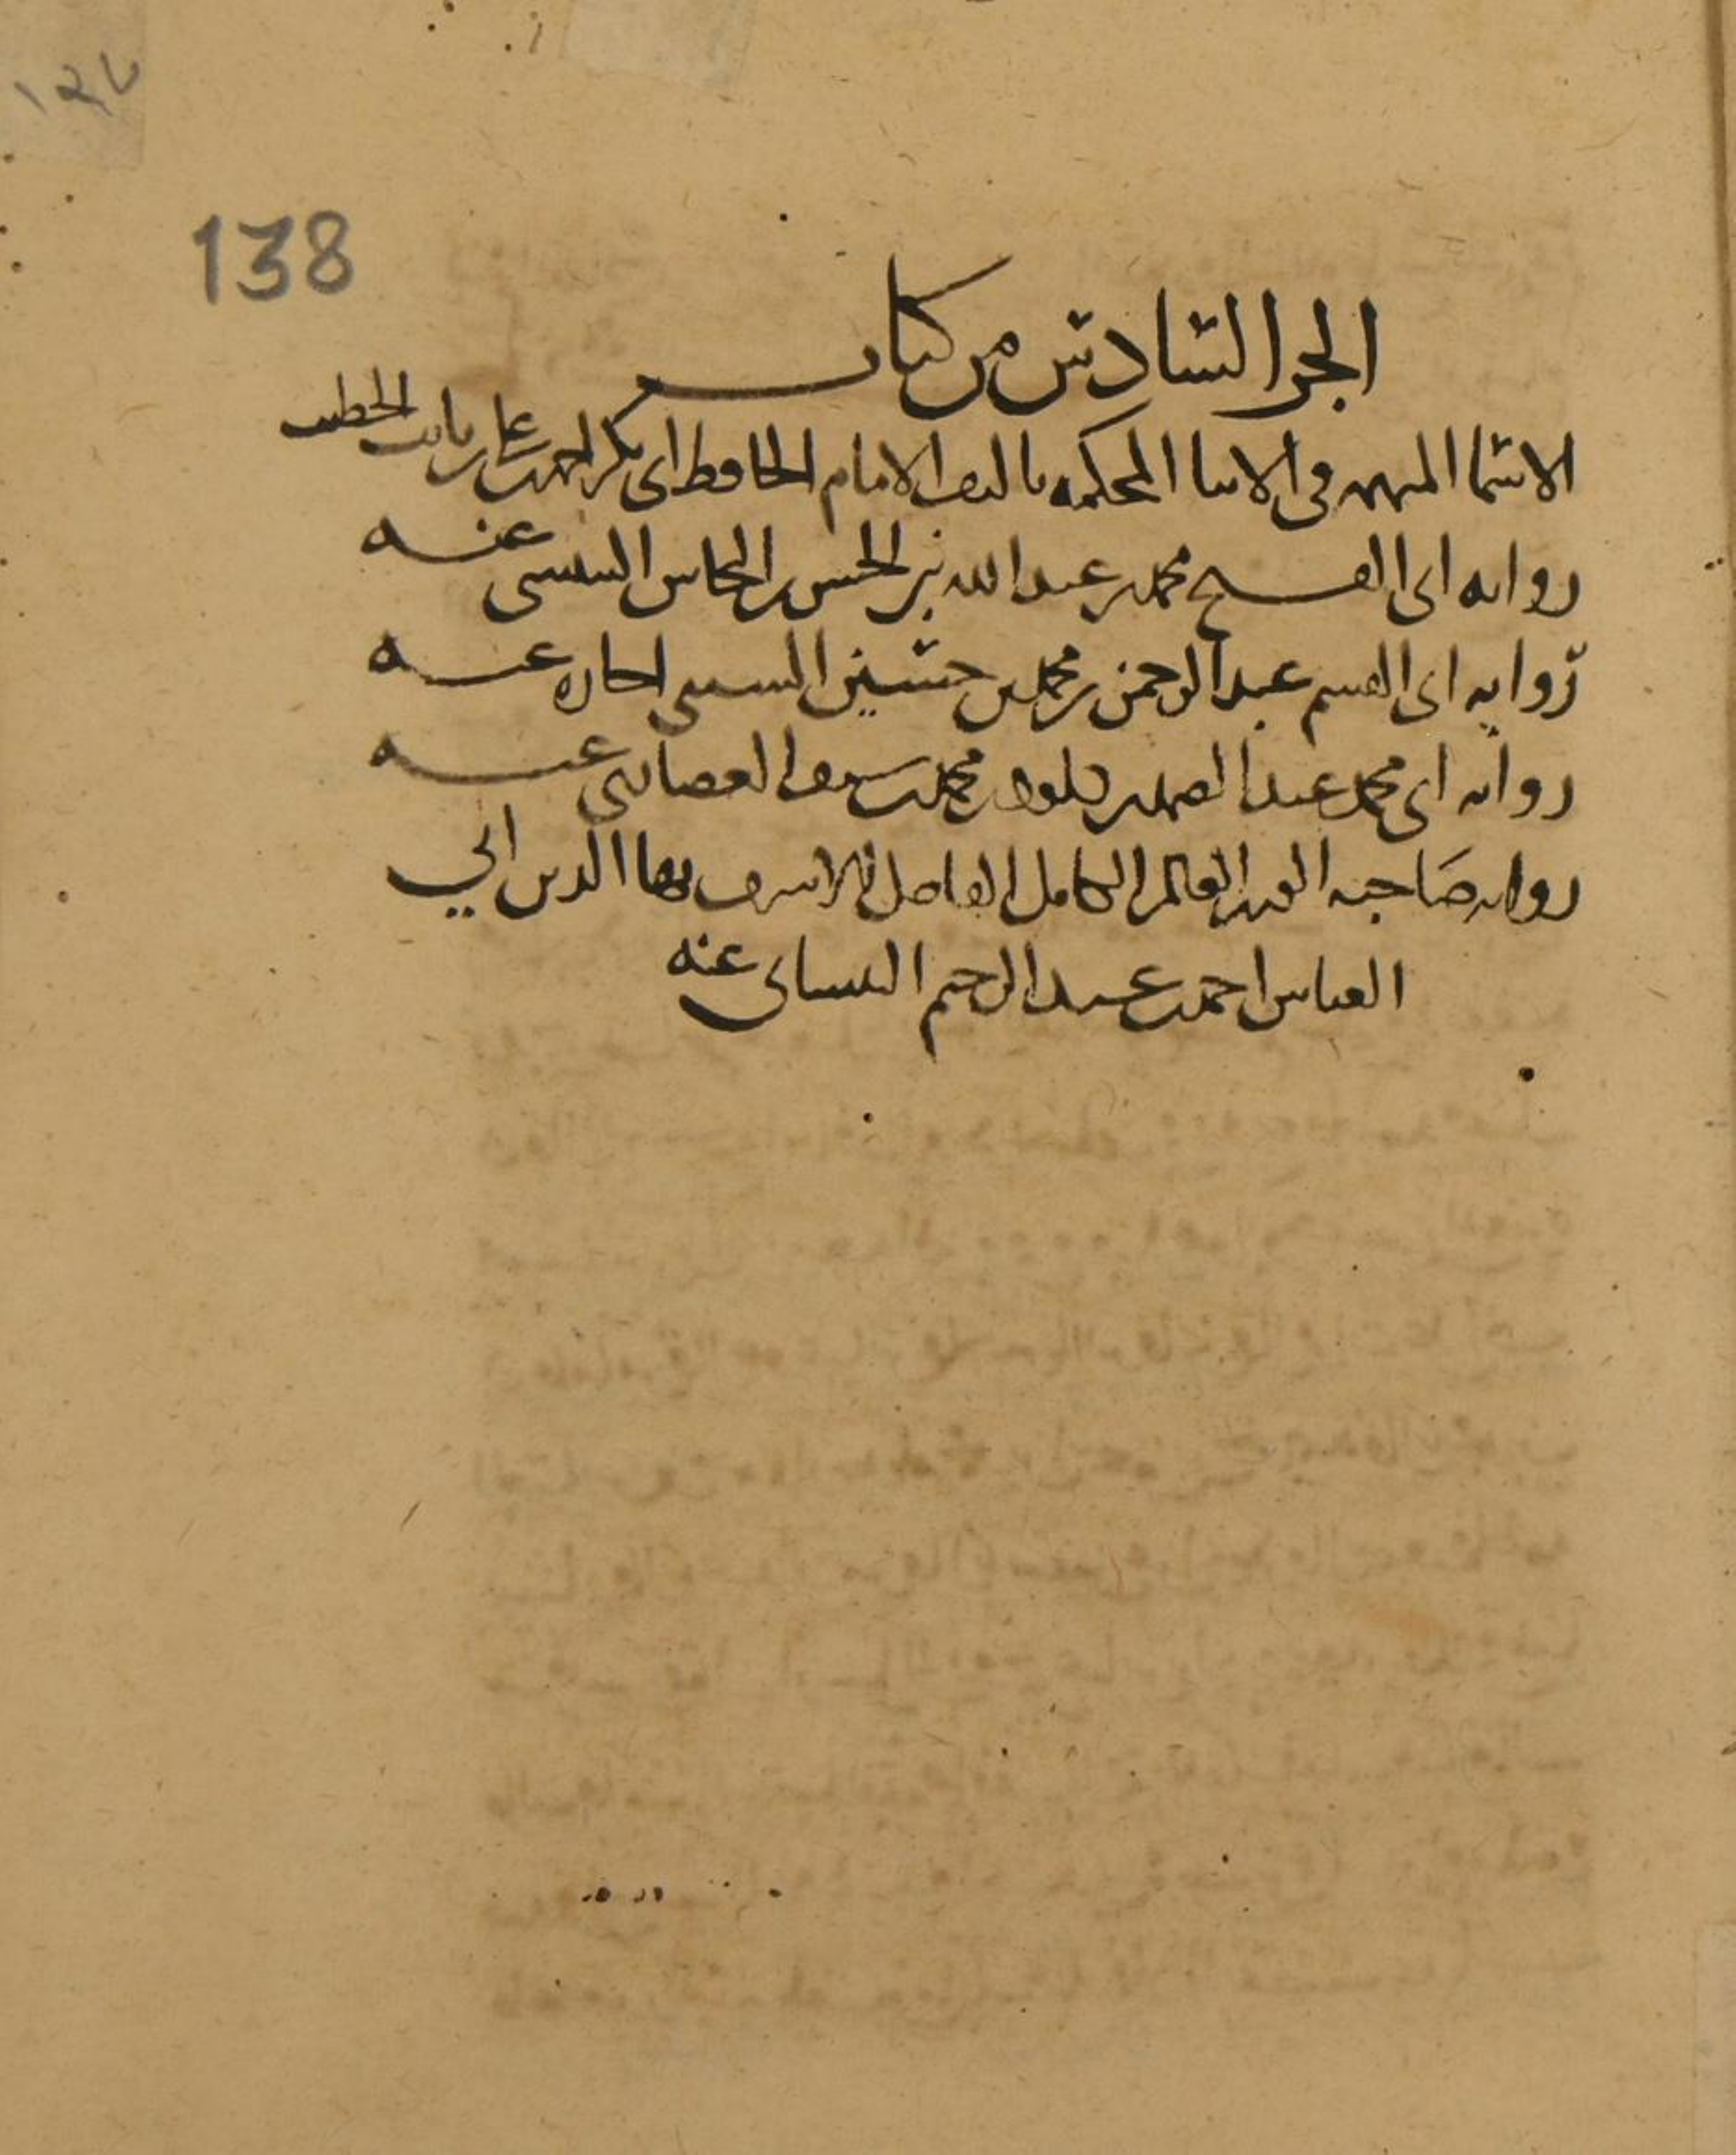 138
الجزء السادس من كتاب
الاسماء المبهمة في الانباء المحكمة تاليف الامام الحافظ ابي بكر احمد بن علي بن ثابت الخطيب
رواية ابي الفتح محمد بن عبد الله بن الحسن بن النحاس عنه
رواية ابي القسم عبد الرحمن بن محمد بن حسين السبيي اجازة عنه
رواية ابي محمد عبد الصمد بن محمد بن يوسف عنه
رواية صاحبه العالم الكامل الفاضل الاشرف بهاء الدين ابي
العباس احمد بن عبد الرحيم البيساني عنه